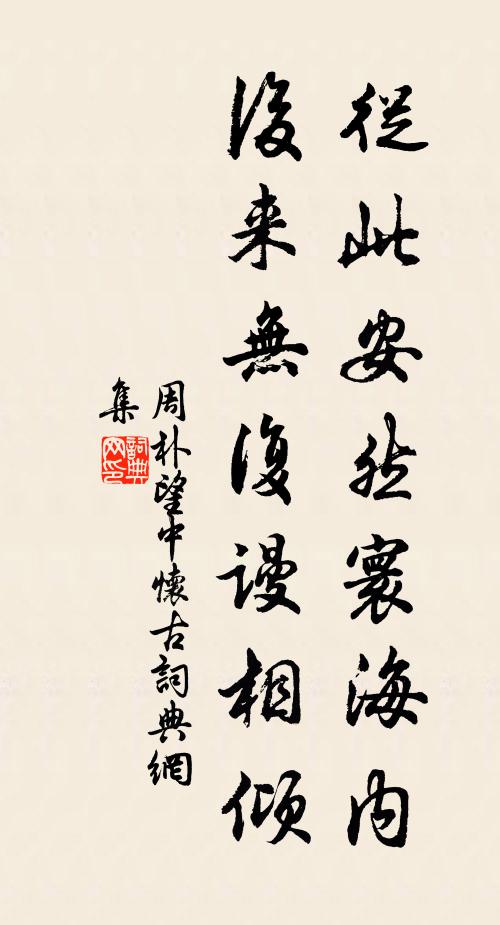 從此安然寰海内
後来無復謾相傾
周朴望中懷古詞典網
集
詞典網印